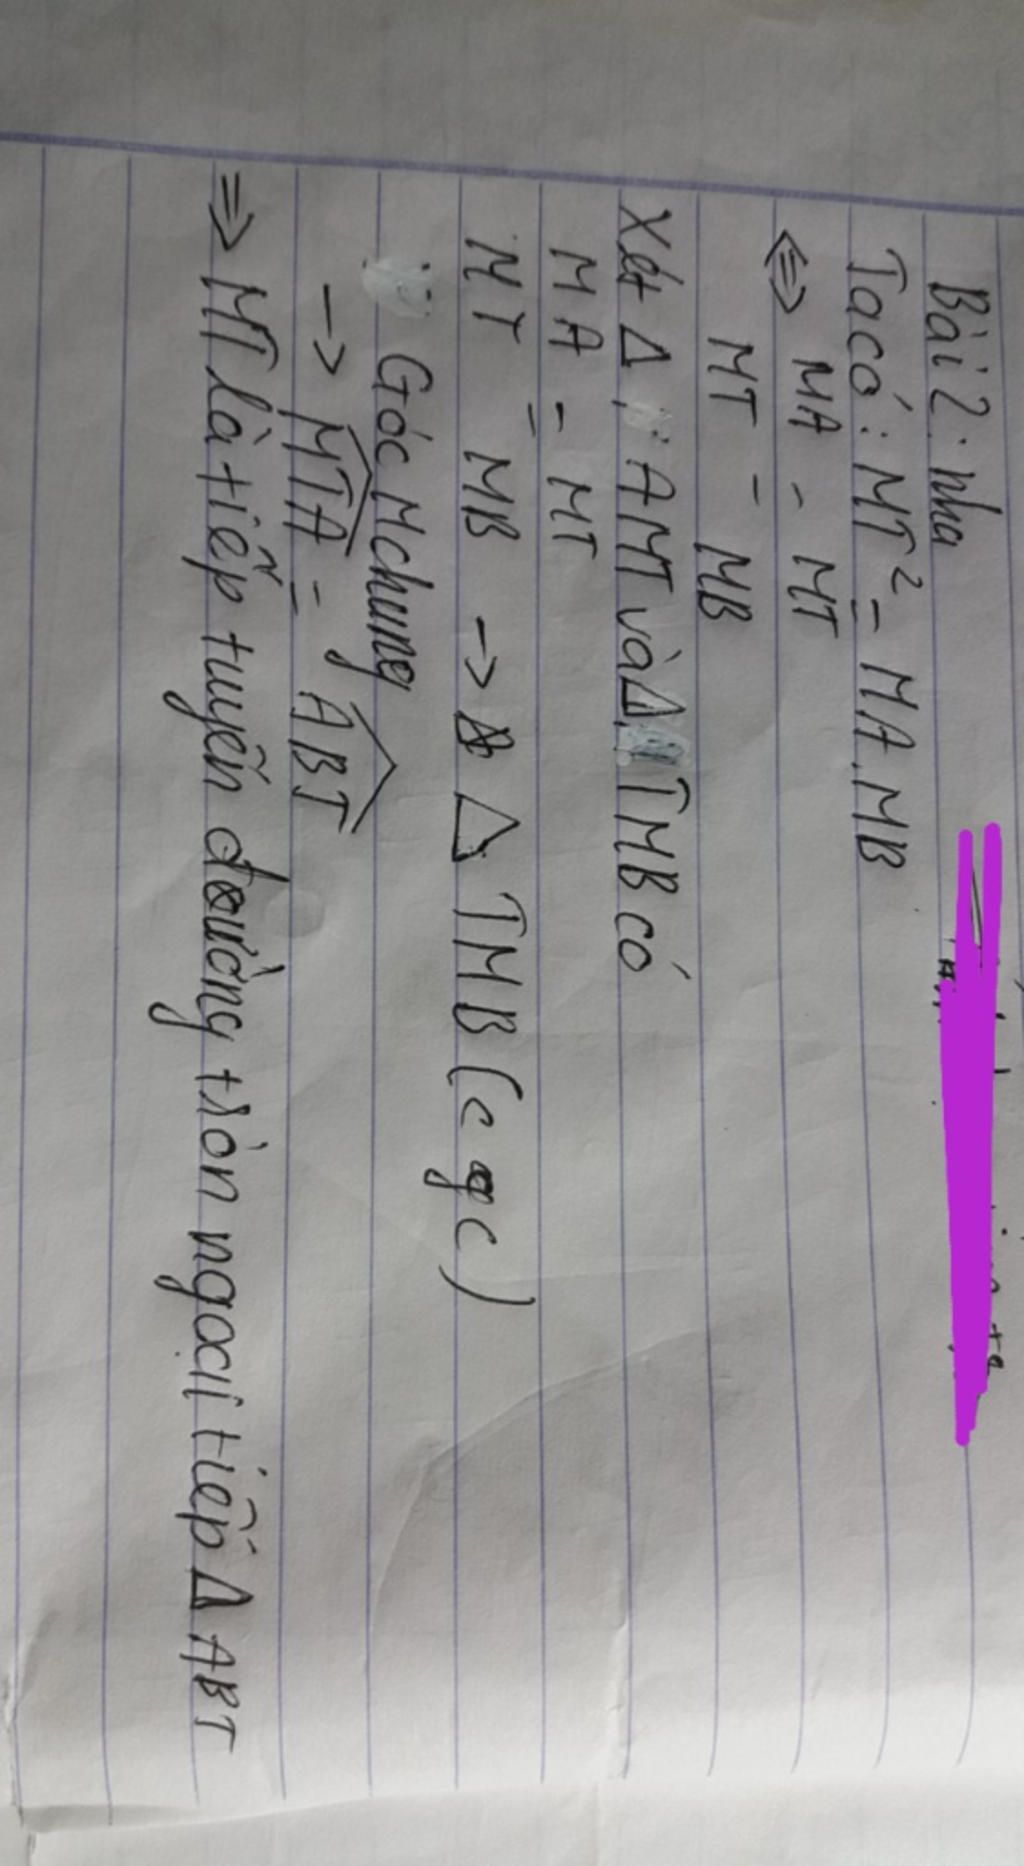 Bài 2. nha
Ta có: MT² = MA.MB
<=> MA - MT
MT - MB
Xét Δ AMT và Δ TMB có
MA - MT
MT = MB -> Δ TMB (cgc)
Góc M chung
-> MTA = ABT
=> MT là tiếp tuyến đường tròn ngoại tiếp Δ ABT